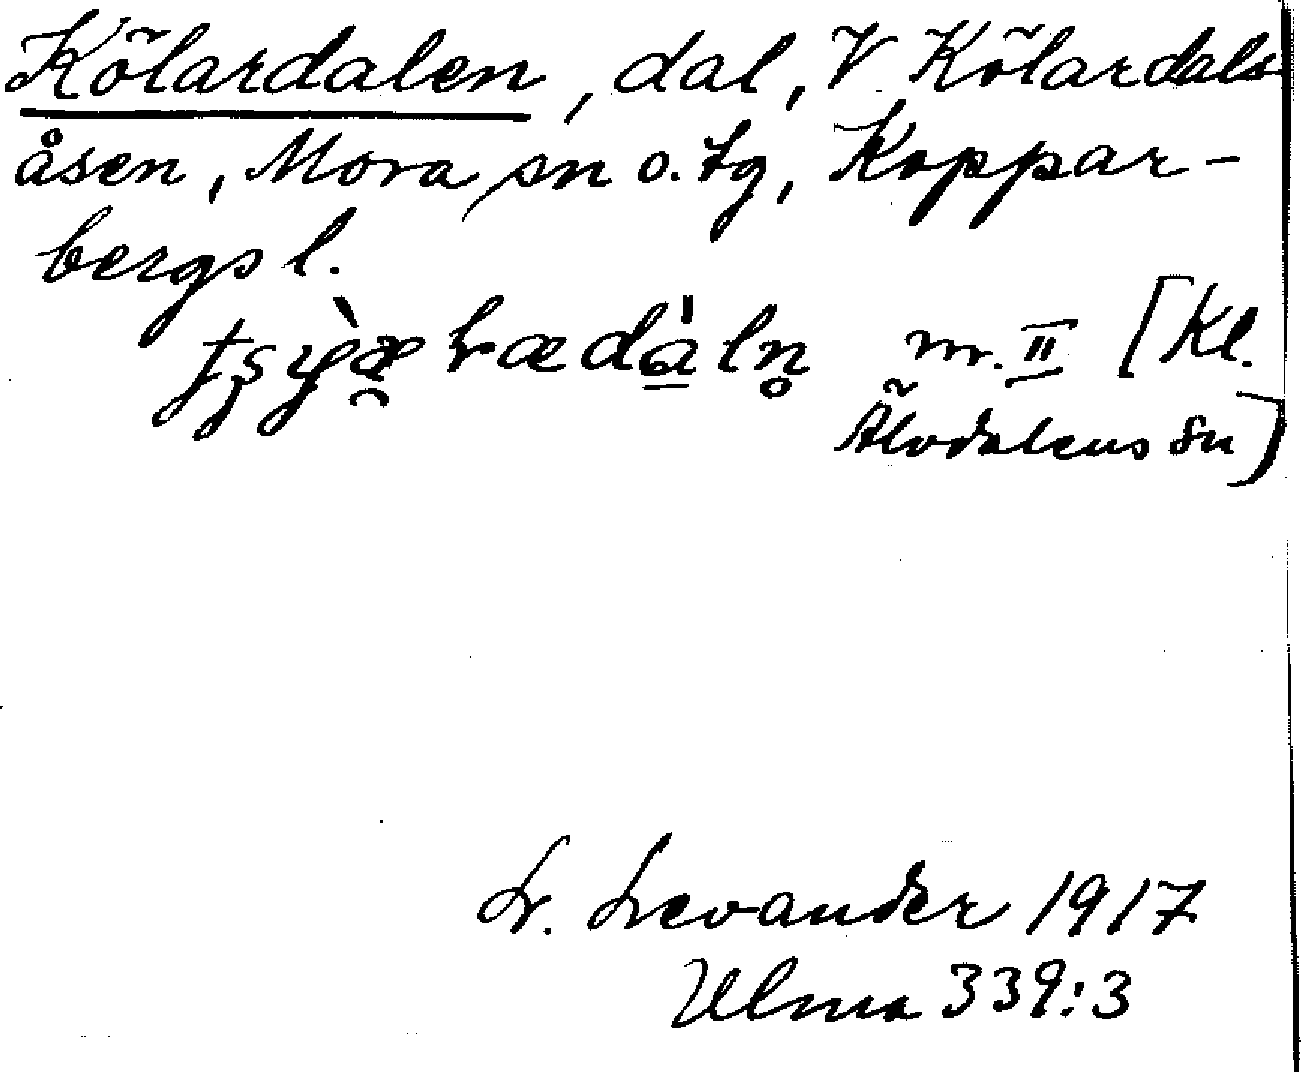 Kölardalen, dal, V Kölardals
åsen, Mora sn o. tg, Koppar-
bergs l.
m. II [Kl.
Älvdalens sn]
L. Levander 1917
Ulma 339:3